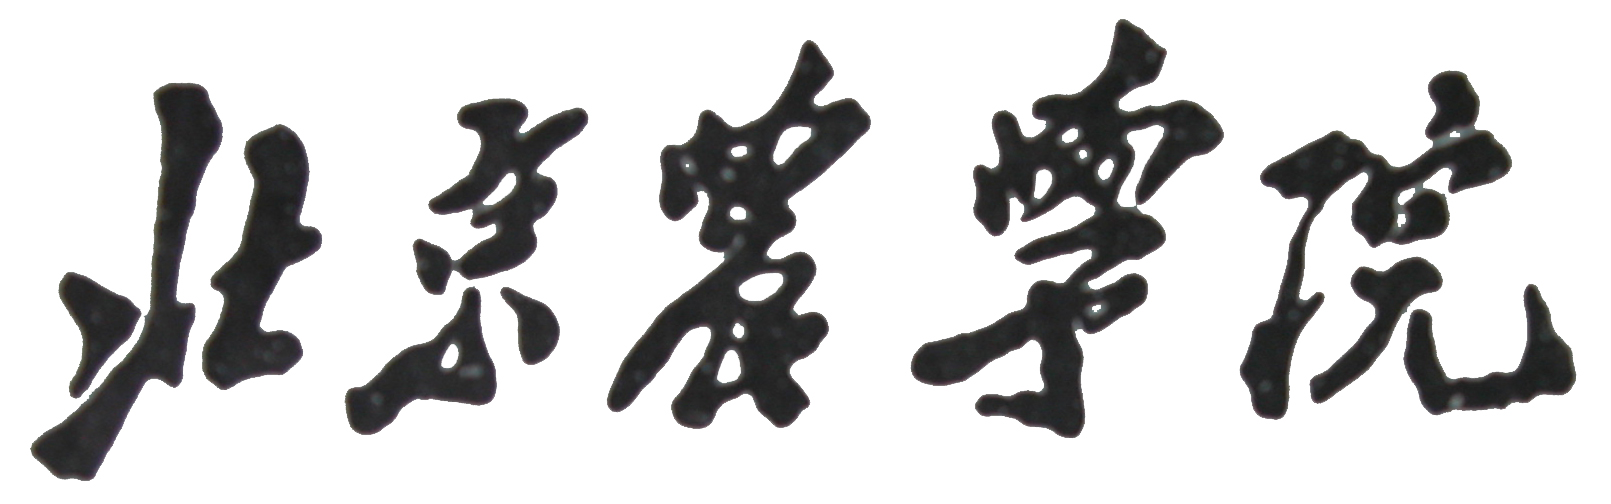 北京農學院